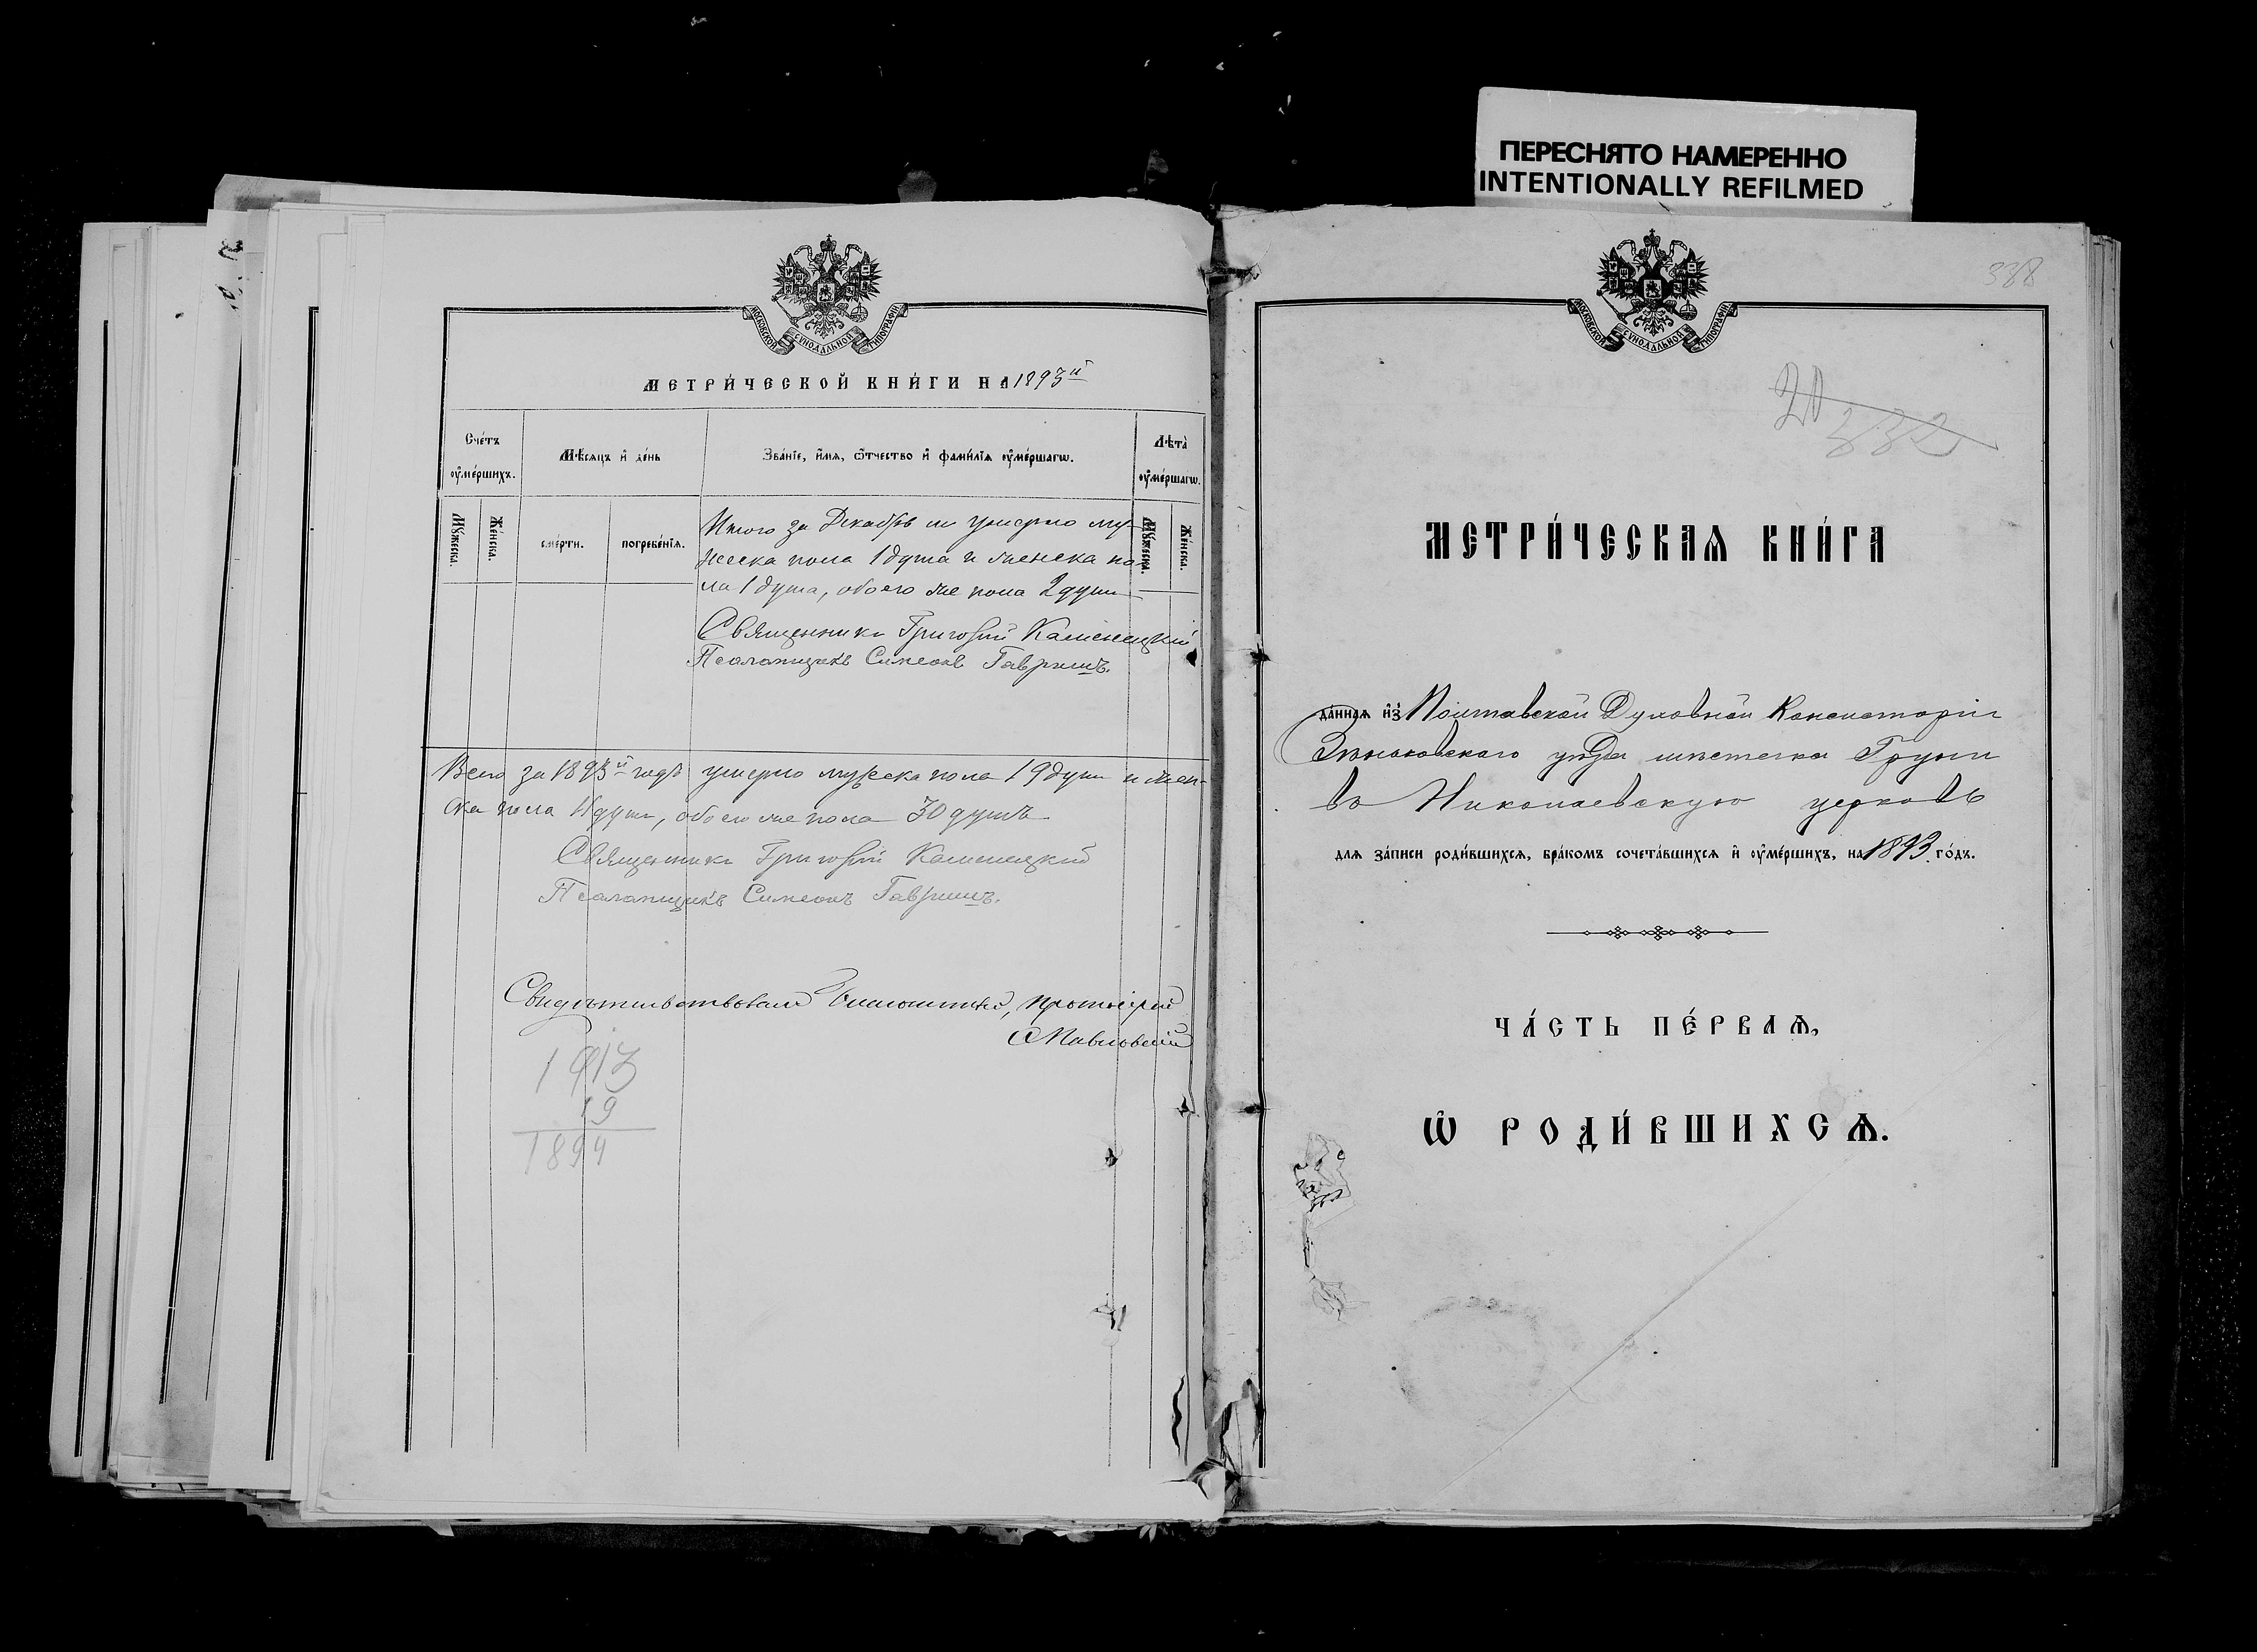 ПЕРЕСНЯТО НАМЕРЕННО
INTENTIONALLY REFILMED
МОСКОВСКОЙ СѴНОДАЛЬНОЙ ТИПОГРАФІИ
МЕТРИ́ЧЕСКОЙ КНИ́ГИ НА 1893й
Сче́тъ ᲂу҆ме́ршихъ.
Мѣ́сяцъ и҆ де́нь
Зва́нїе, и҆́мѧ, ѻ҆́тчество и҆ фами́лїѧ ᲂу҆ме́ршагѡ.
Лѣта̀ ᲂу҆ме́ршагѡ.
Мꙋ́жеска.
Же́нска.
сме́рти.
погребе́нїѧ.
Мꙋ́жеска.
Же́нска.
Итого за Декабрь м умерло му-
жеска пола 1 душа и женска по-
ла 1 душа, обоего же пола 2 души
Священникъ Григорій Каменецкій
Псаломщикъ Симеонъ Гавришъ.
Всего за 1893й годъ умерло мужеска пола 19 душъ и жен-
ска пола 11 душъ, обоего же пола 30 душъ
Священникъ Григорій Каменецкій
Псаломщикъ Симеонъ Гавришъ.
Свидѣтельствовалъ протоіерей
Павловскій
1913
19
1894
МОСКОВСКОЙ СѴНОДАЛЬНОЙ ТИПОГРАФІИ
338
20
332
МЕТРИ́ЧЕСКАѦ КНИ́ГА
да́ннаѧ и҆з̾ Полтавской Духовной Консисторіи
Зѣньковскаго уѣзда мѣстечка Груни
въ Николаевскую церковь
для за́писи роди́вшихсѧ, бра́комъ сочета́вшихсѧ и҆ ᲂу҆ме́ршихъ, на 1893 го́дъ.
ЧА́СТЬ ПЕ́РВАѦ,
Ѽ РОДИ́ВШИХСѦ.